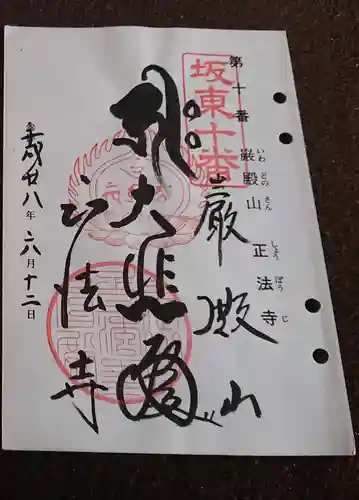 坂東十番
第十番
巌殿山 正法寺
いわ どの さん しょう ぼう じ
巌殿山
大悲殿
正法寺
平成廿八年六月十二日